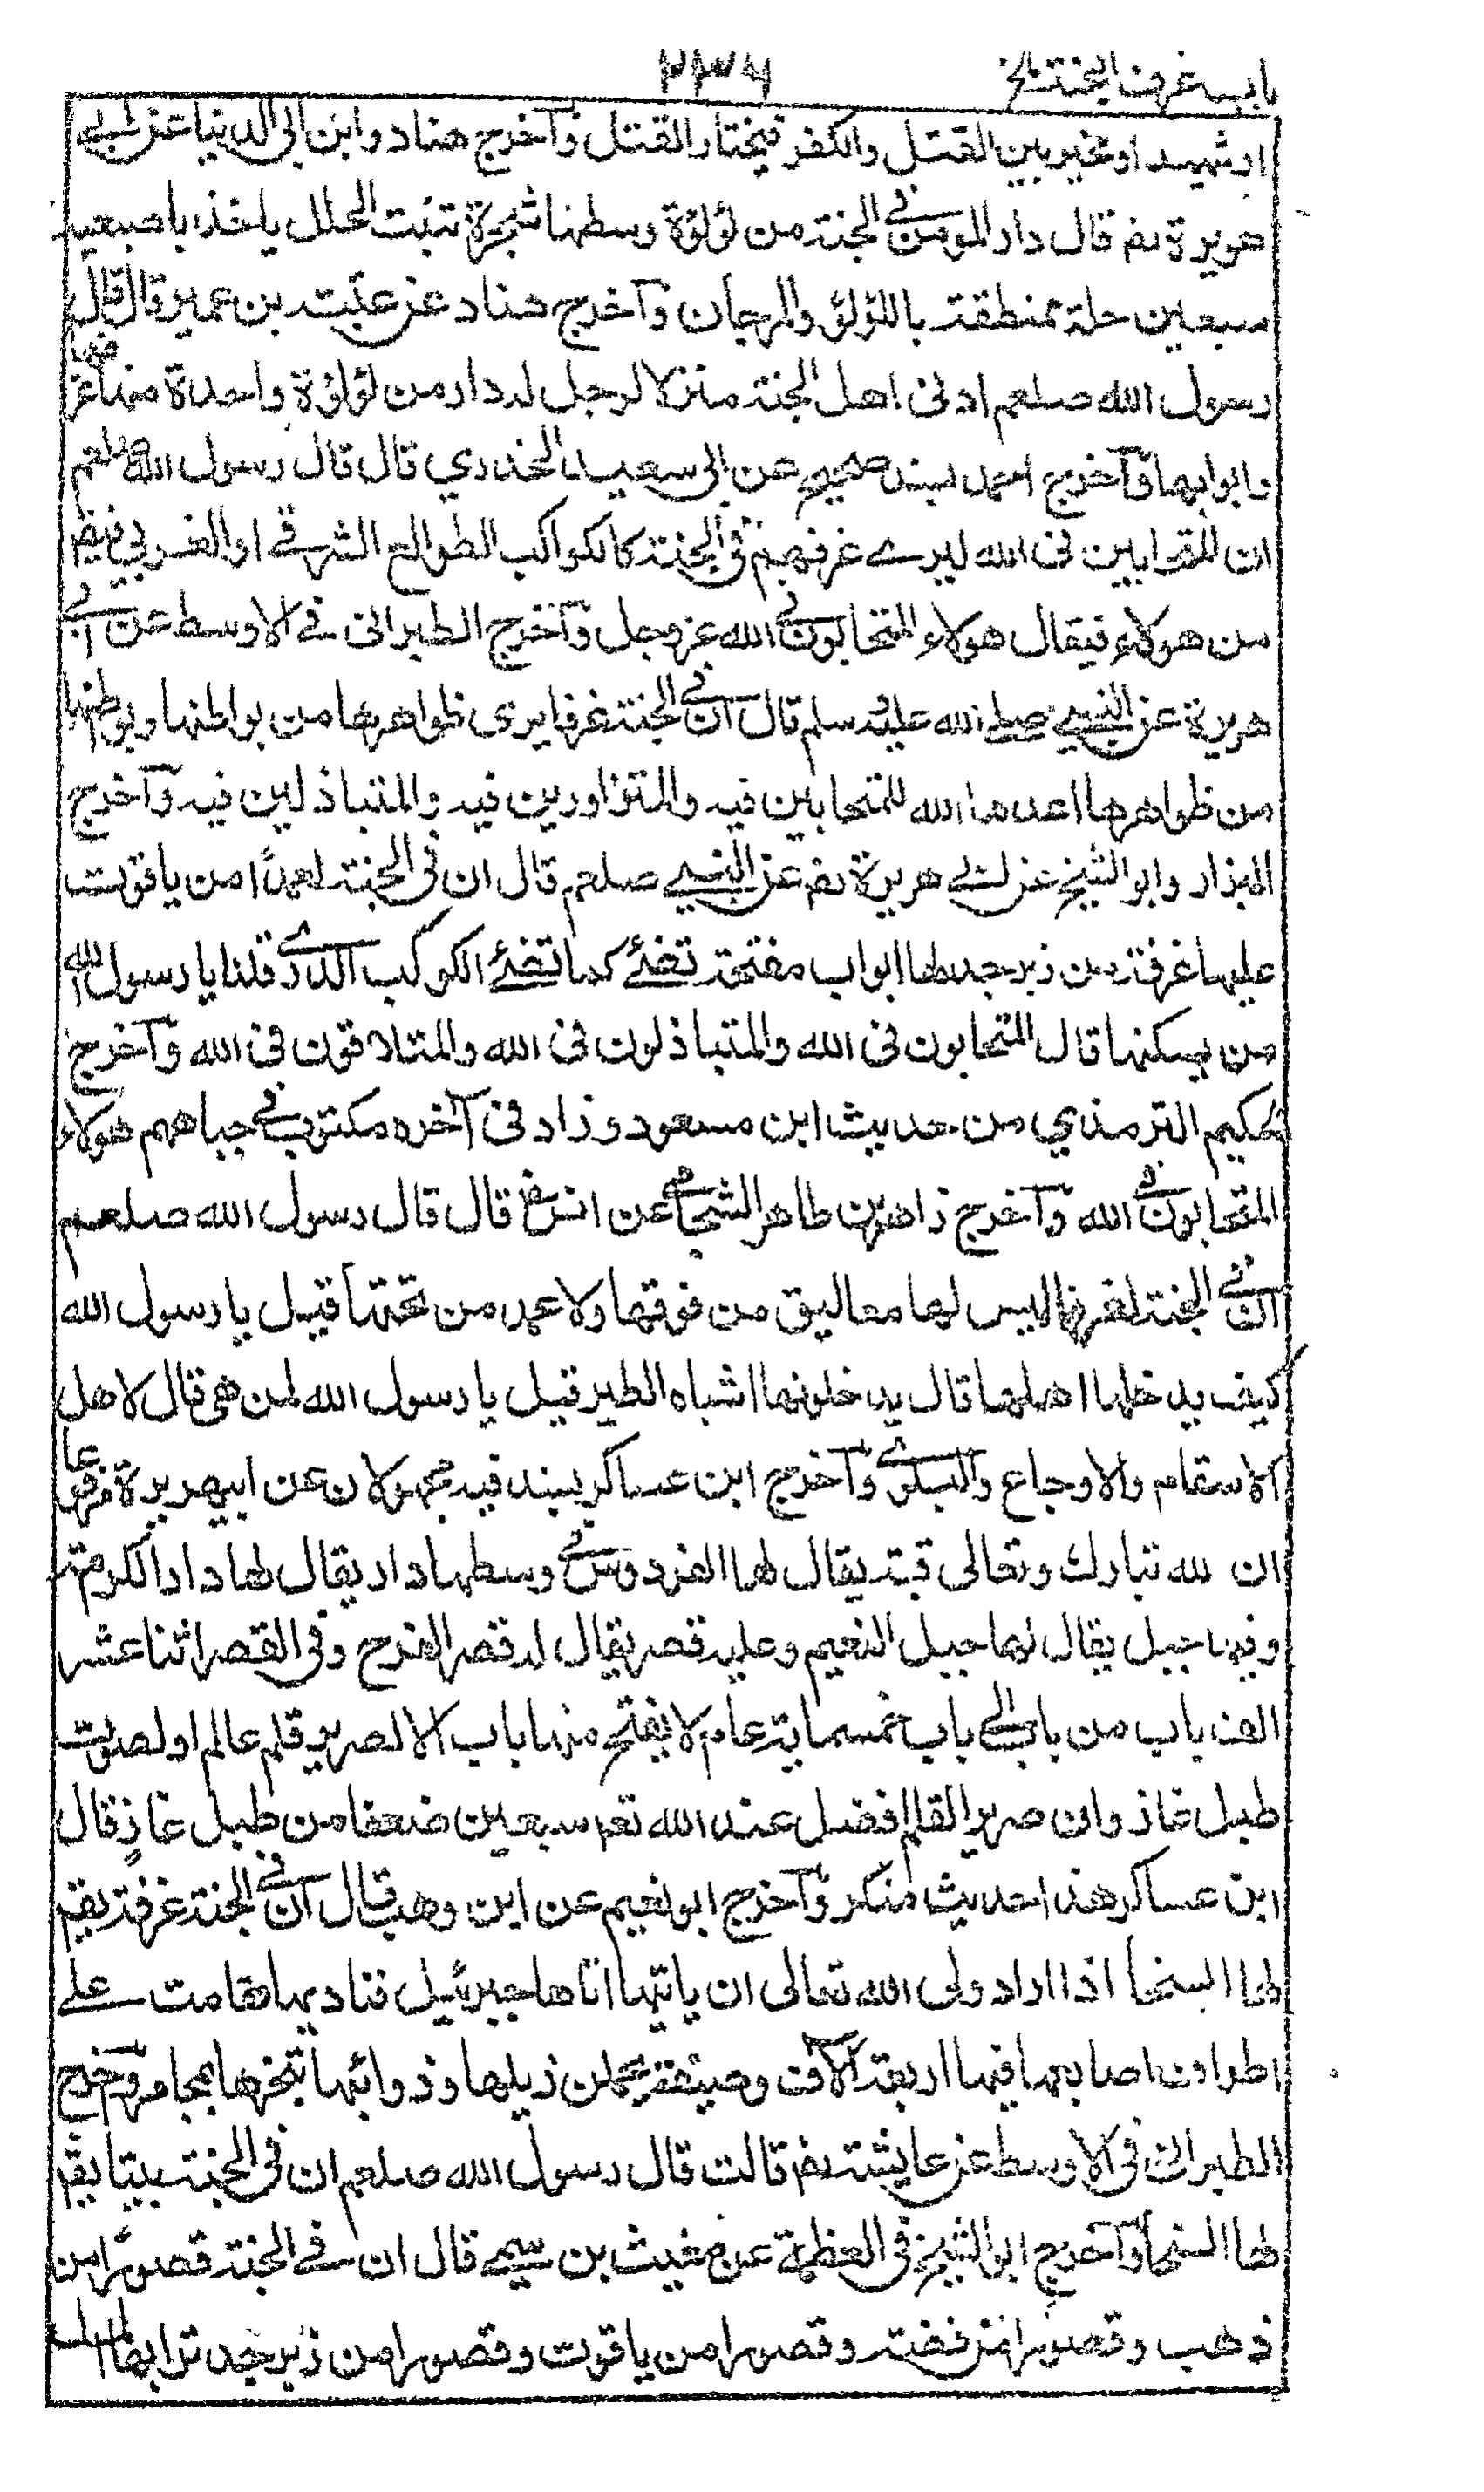 باب غرف الجنة الخ ۲۳۶
او شهيد او مخير بين القتل والكفر فيختار القتل وآخرج هناد وابن ابى الدنيا عن ابى
هريرة رضـ قال دار المومن فى الجنة من لؤلؤة وسطها شجرة تنبت الحلل ياخذ باصبعيه
سبعين حلة ممنطقة باللؤلؤ والمرجان وآخرج هناد عن عبيد بن عمير قال قال
رسول الله صلعم ادنى اهل الجنة منزلا لرجل له دار من لؤلؤة واحدة منها غرفها
وابوابها وآخرج احمد بسند صحيح عن ابى سعيد الخدري قال قال رسول الله صلعم
ان المتحابين فى الله ليرے غرفهم فى الجنة كالكواكب الطوالع الشرقے او الغربي فيقـ
من هولاء فيقال هولاء المتحابون فى الله عزوجل وآخرج الطبرانى فے الاوسط عن ابى
هريرة عن النبى صلى الله عليه وسلم قال ان فى الجنة غرفا يرى ظواهرها من بواطنها وبواطنها
من ظواهرها اعدها الله للمتحابين فيه والمتزاورين فيه والمتباذلين فيه وآخرج
البزار وابو الشيخ عن ابى هريرة رضـ عن النبى صلعم قال ان فى الجنة لعمدًا من ياقوت
عليها غرفة من زبرجد لها ابواب مفتحة تضئ كما تضئ الكوكب الدرے قلنا يا رسول الله
من يسكنها قال المتحابون فى الله والمتباذلون فى الله والمتلاقون فى الله وآخرج
حكيم الترمذي من حديث ابن مسعود وزاد فى آخره مكتوب فى جباههم هولاء
المتحابون فى الله وآخرج زاهر بن طاهر الشحامى عن انس رضـ قال قال رسول الله صلعم
ان فى الجنة لغرفا ليس لها معاليق من فوقها ولا عمد من تحتها قيل يا رسول الله
كيف يدخلها اهلها قال يدخلونها اشباه الطير قيل يا رسول الله لمن هى قال لاهل
الاسقام والاوجاع والبلوے وآخرج ابن عساكر بسند فيه مجهولان عن ابيهريرة مرفوعا
ان لله تبارك وتعالى قبة يقال لها الفردوس فى وسطها دار يقال لها دار الكرمة
وفيها جبل يقال لها جبل النعيم وعليه قصر يقال له قصر الفرح وفى القصر اثنا عشر
الف باب من باب الى باب خمسماية عام لا يفتح منها باب الا لصرير قلم عالم او لصوت
طبل غاز وان صرير القلم افضل عند الله تعـ سبعين ضعفا من طبل غازٍ قال
ابن عساكر هذا حديث منكر وآخرج ابو نعيم عن ابن وهب قال ان فى الجنة غرفة يقـ
لها السخا اذا اراد ولى الله تعالى ان ياتيها اتاها جبرئيل فناديها فقامت علے
اطراف اصابعها فيها اربعة آلاف وصيفة يحملن ذيلها وذوائبها تبخرها بمجامر وآخرج
الطبرانى فى الاوسط عن عايشة رضـ قالت قال رسول الله صلعم ان فى الجنة بيتا يقـ
لها السخا وآخرج ابو الشيخ فى العظمة عن مغيث بن سمى قال ان فے الجنة قصورًا من
ذهب وقصورا من فضة وقصورا من ياقوت وقصورا من زبرجد ترابها المسك